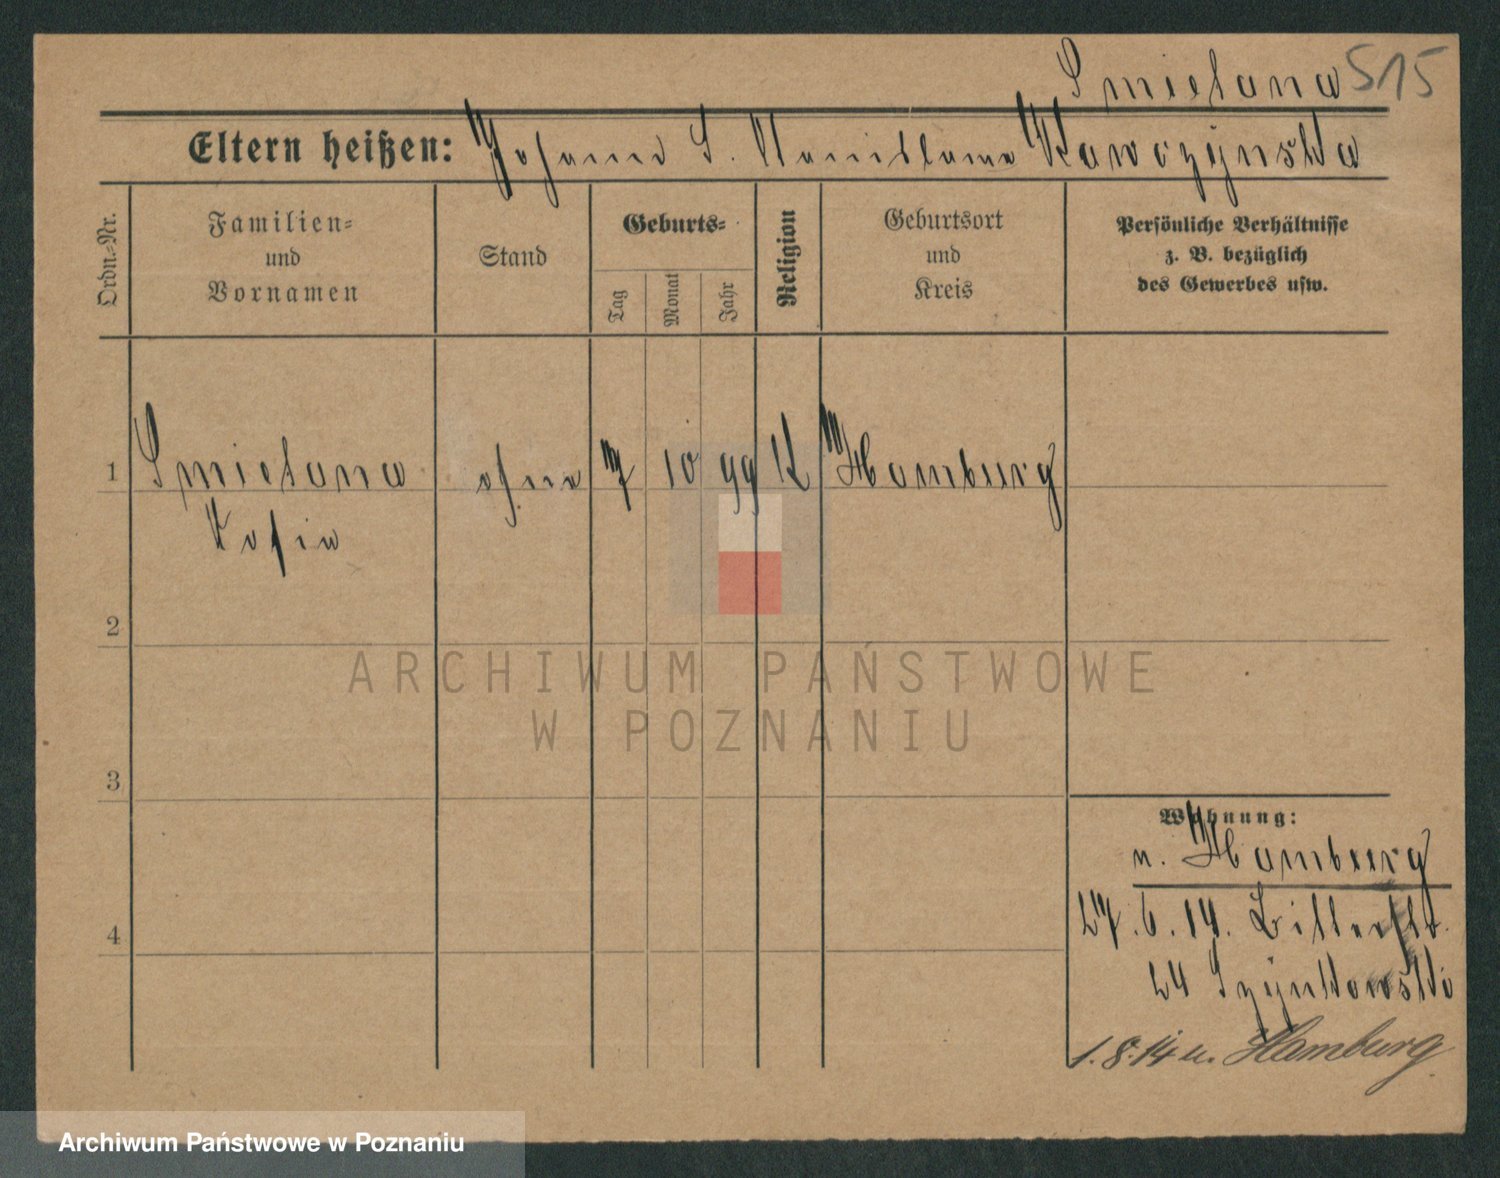 Smielana 515
Eltern heißen: Johann S. Stanislawa Kawczynska
Ordn.-Nr.
Familien-
und
Vornamen
Stand
Geburts-
Tag
Monat
Jahr
Religion
Geburtsort
und
Kreis
Persönliche Verhältnisse
z. B. bezüglich
des Gewerbes usw.
1 Smielana ohne 7 10 99 K Hamburg
Sofia
2
3
4
Wohnung:
n. Hamburg
27. 6. 14. Bitterstr.
24 Szynkowski
1. 8. 14 n. Hamburg
ARCHIWUM PAŃSTWOWE
W POZNANIU
Archiwum Państwowe w Poznaniu